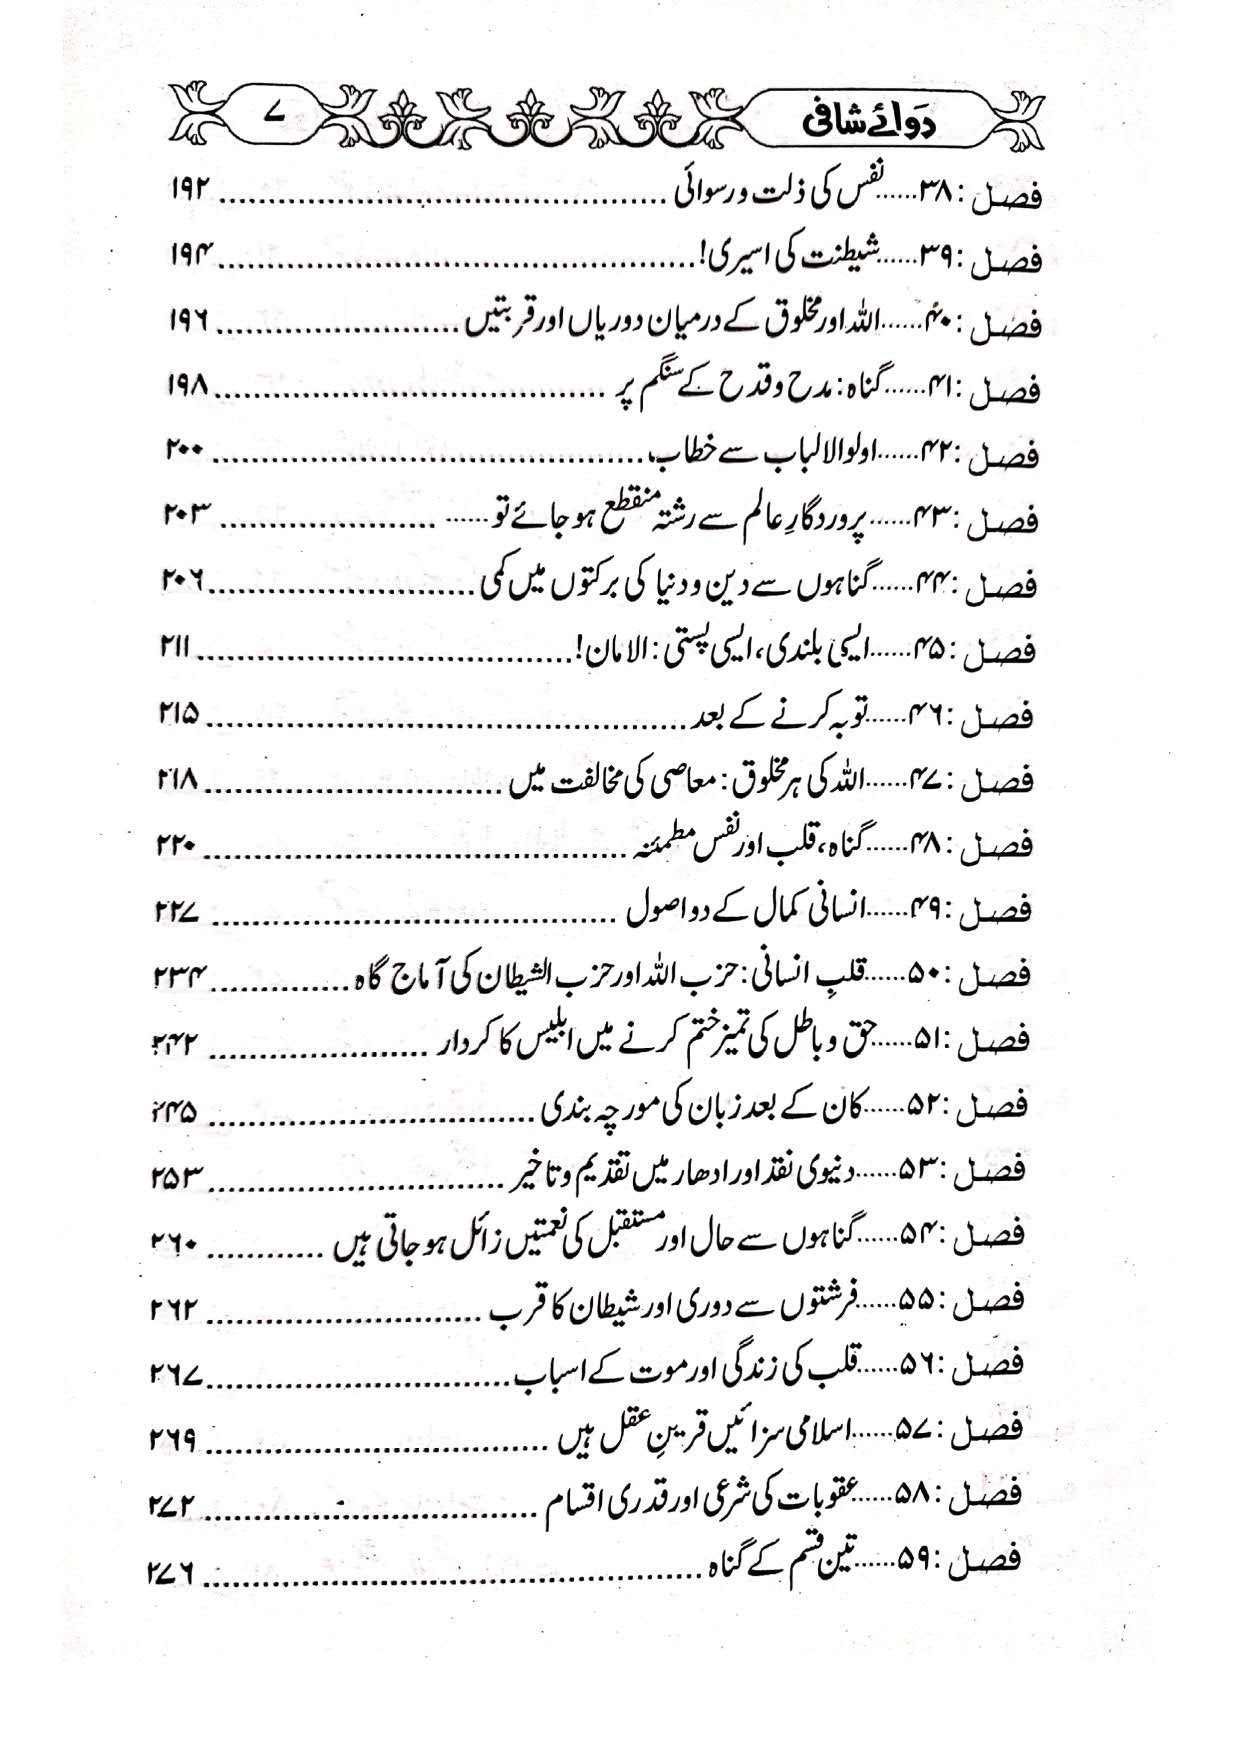 دَوائے شافی ۷
فصل :۳۸......نفس کی ذلت و رسوائی ............ ۱۹۲
فصل :۳۹......شیطنت کی اسیری! ............ ۱۹۴
فصل :۴۰......اللہ اور مخلوق کے درمیان دوریاں اور قربتیں ............ ۱۹۶
فصل :۴۱......گناہ: مدح و قدح کے سنگم پر ............ ۱۹۸
فصل :۴۲......اولوالالباب سے خطاب ............ ۲۰۰
فصل :۴۳......پروردگارِ عالم سے رشتہ منقطع ہو جائے تو ...... ............ ۲۰۳
فصل :۴۴......گناہوں سے دین و دنیا کی برکتوں میں کمی ............ ۲۰۶
فصل :۴۵......ایسی بلندی، ایسی پستی: الامان! ............ ۲۱۱
فصل :۴۶......توبہ کرنے کے بعد ............ ۲۱۵
فصل :۴۷......اللہ کی ہر مخلوق: معاصی کی مخالفت میں ............ ۲۱۸
فصل :۴۸......گناہ، قلب اور نفس مطمئنہ ............ ۲۲۰
فصل :۴۹......انسانی کمال کے دو اصول ............ ۲۲۷
فصل :۵۰......قلبِ انسانی: حزب اللہ اور حزب الشیطان کی آماج گاہ ............ ۲۳۴
فصل :۵۱......حق و باطل کی تمیز ختم کرنے میں ابلیس کا کردار ............ ۲۴۲
فصل :۵۲......کان کے بعد زبان کی مورچہ بندی ............ ۲۴۵
فصل :۵۳......دنیوی نقد اور ادھار میں تقدیم و تاخیر ............ ۲۵۳
فصل :۵۴......گناہوں سے حال اور مستقبل کی نعمتیں زائل ہو جاتی ہیں ............ ۲۶۰
فصل :۵۵......فرشتوں سے دوری اور شیطان کا قرب ............ ۲۶۲
فصل :۵۶......قلب کی زندگی اور موت کے اسباب ............ ۲۶۷
فصل :۵۷......اسلامی سزائیں قرینِ عقل ہیں ............ ۲۶۹
فصل :۵۸......عقوبات کی شرعی اور قدری اقسام ............ ۲۷۲
فصل :۵۹......تین قسم کے گناہ ............ ۲۷۶